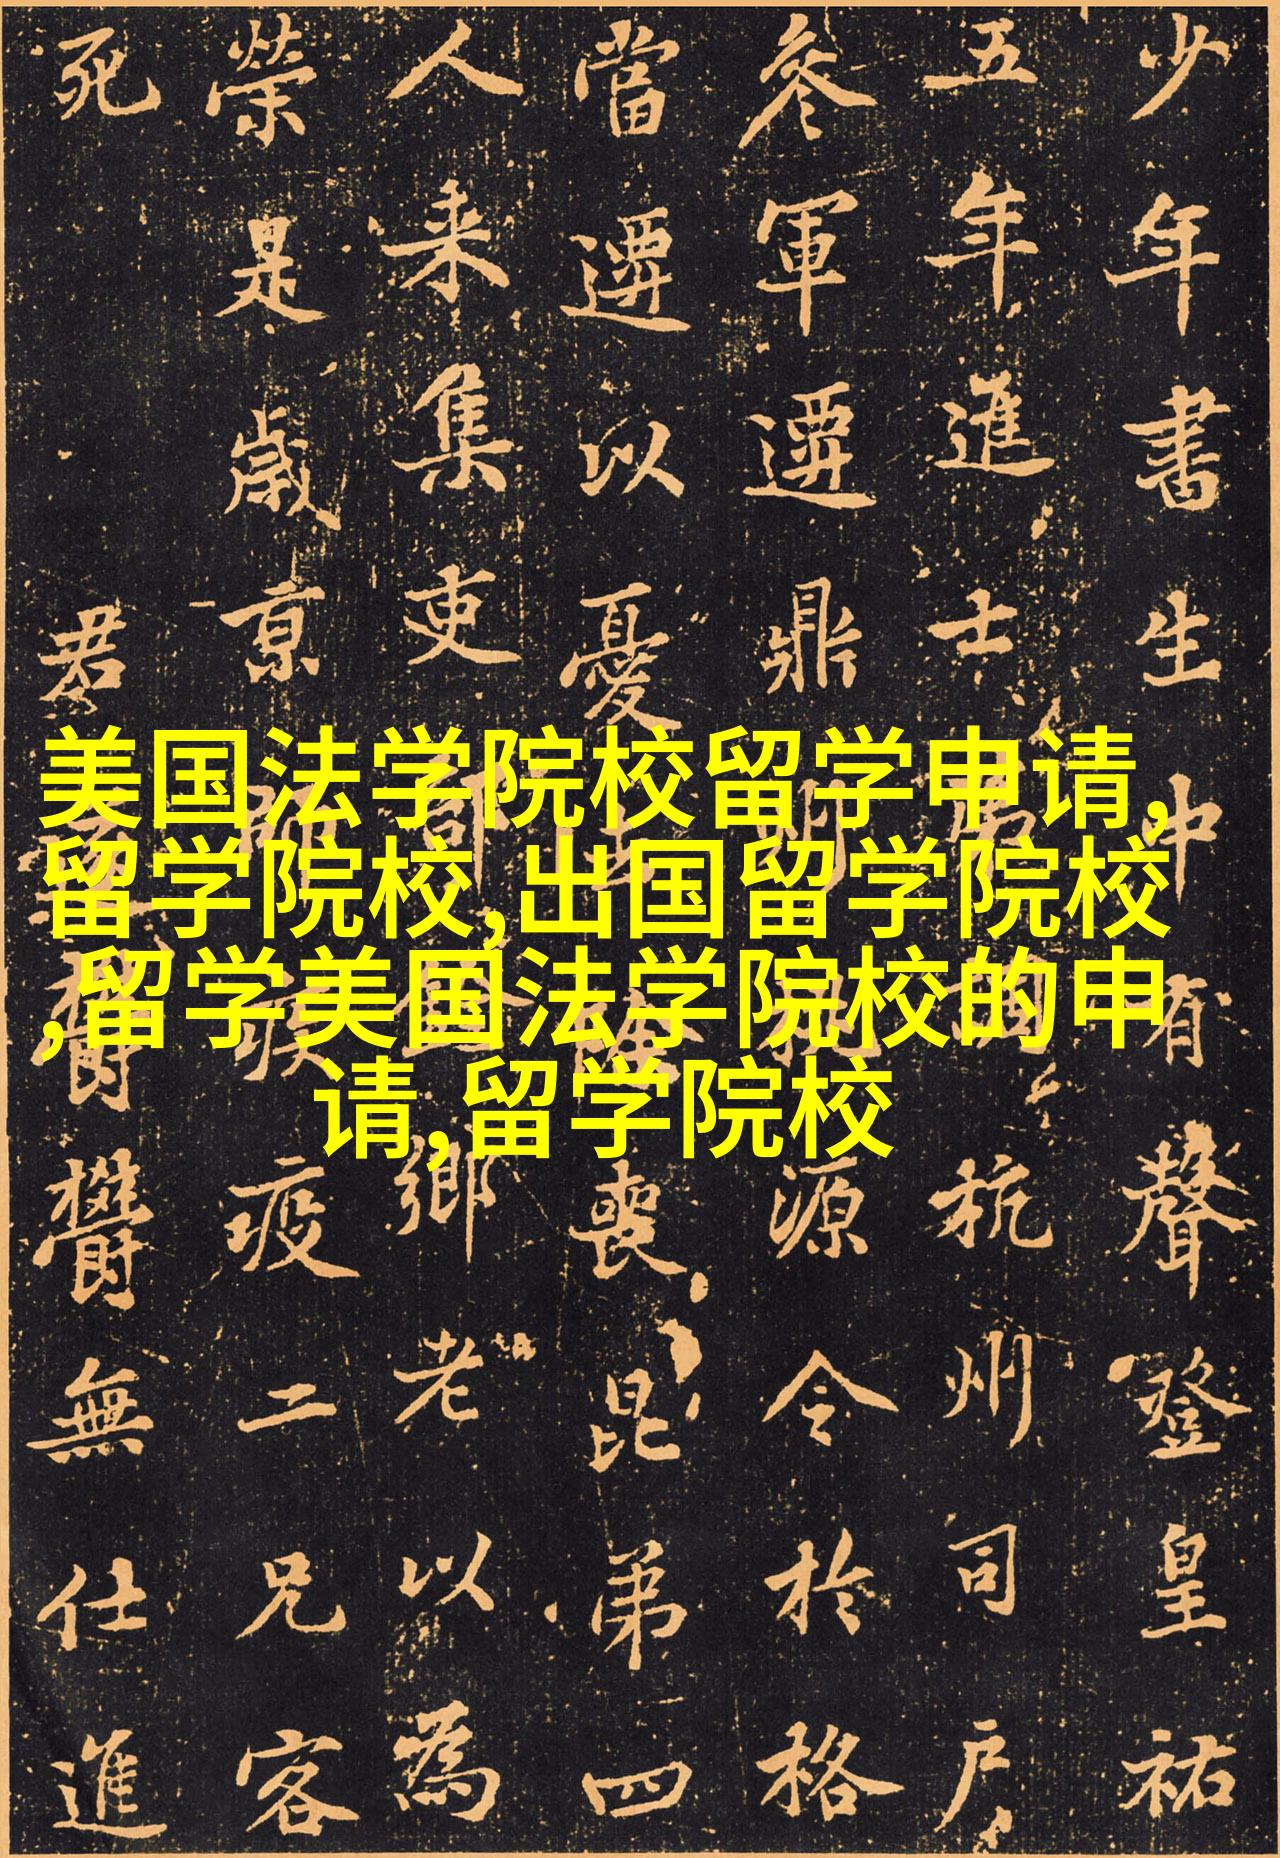 美国法学院校留学申请,
留学院校,出国留学院校
,留学美国法学院校的申
请,留学院校
少年書生中有聲登皇祐
五年進士第杭州司戶
參軍遷鼎州桃源令於格
當遷以憂去喪昆弟四
人来集吏鄉老以為
榮是歲京師疫二兄客
死 君鬱鬱無仕進